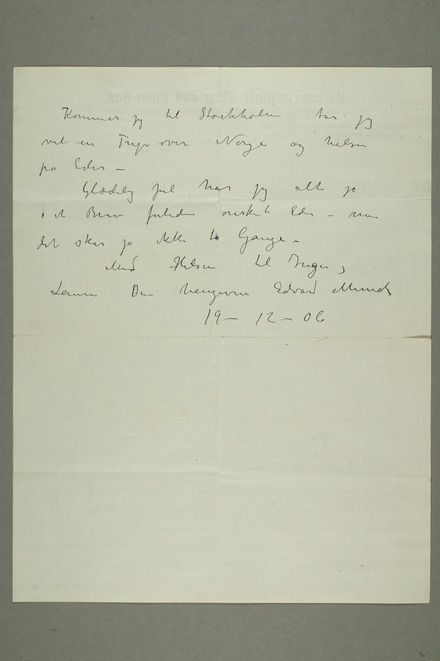 Kommer jeg til Stockholm tar jeg
vel en Trip over Norge og hilser
på Eder –
Glædelig jul har jeg alt jo
i et Brev forleden ønsket Eder – men
det skar jo ikke to Gange –
Med Hilsen til Inger,
Laura Din hengivne Edvard Munch
19 – 12 – 06